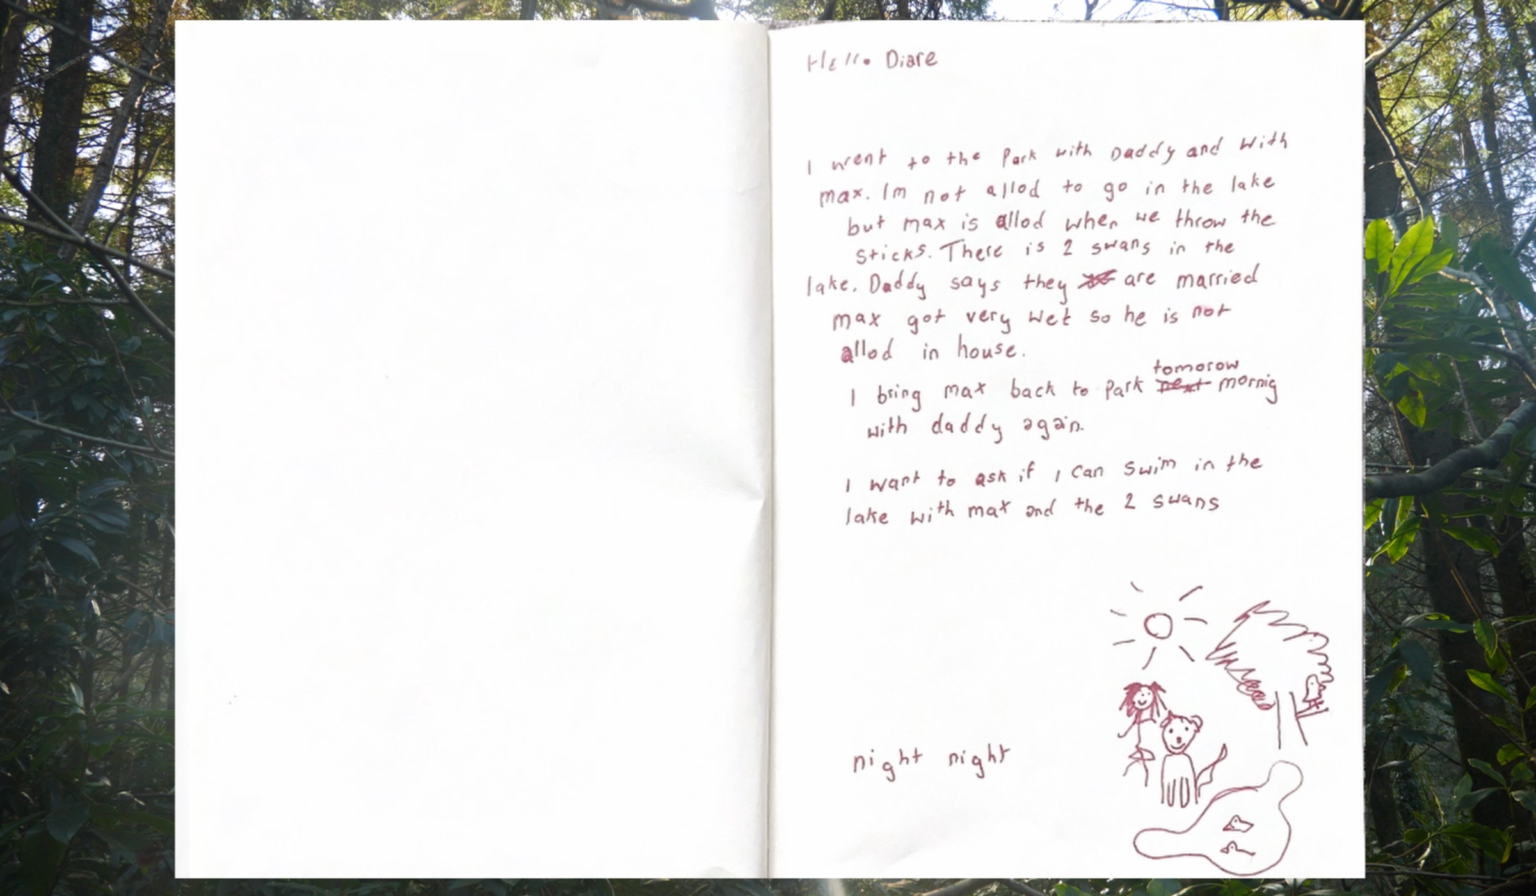 Hello Diare
I went to the Park with Daddy and with
max. Im not allod to go in the lake
but max is allod when we throw the
sticks. There is 2 swans in the
lake. Daddy says they are married
max got very wet so he is not
allod in house.
I bring max back to park tomorow mornig
with daddy again.
I want to ask if I can swim in the
lake with max and the 2 swans
night night